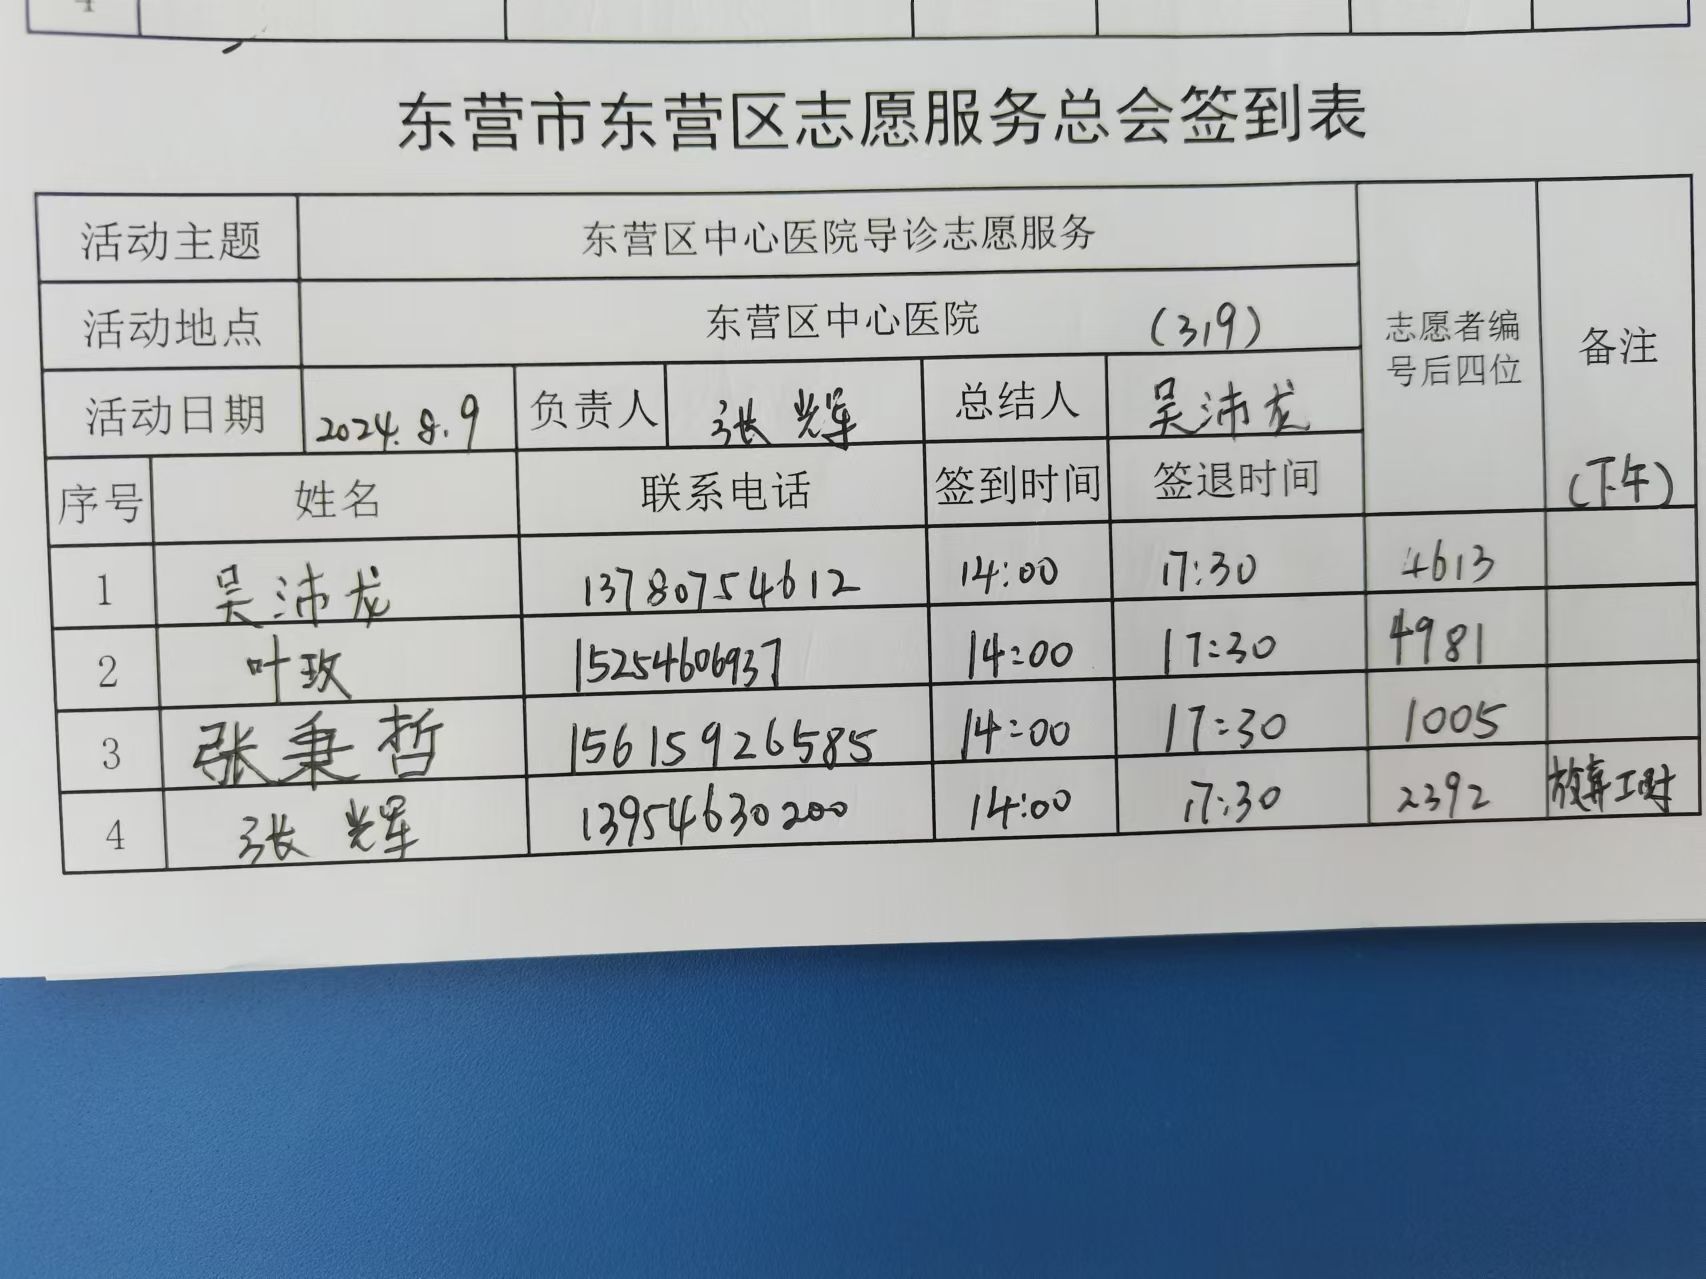 4
东营市东营区志愿服务总会签到表
活动主题 东营区中心医院导诊志愿服务 志愿者编号后四位 备注 (下午)
活动地点 东营区中心医院 (319)
活动日期 2024.8.9 负责人 张辉 总结人 吴沛龙
序号 姓名 联系电话 签到时间 签退时间
1 吴沛龙 13780754612 14:00 17:30 4613
2 叶玫 15254606937 14:00 17:30 4981
3 张秉哲 15615926585 14:00 17:30 1005
4 张辉 13954630200 14:00 17:30 2392 放弃工时